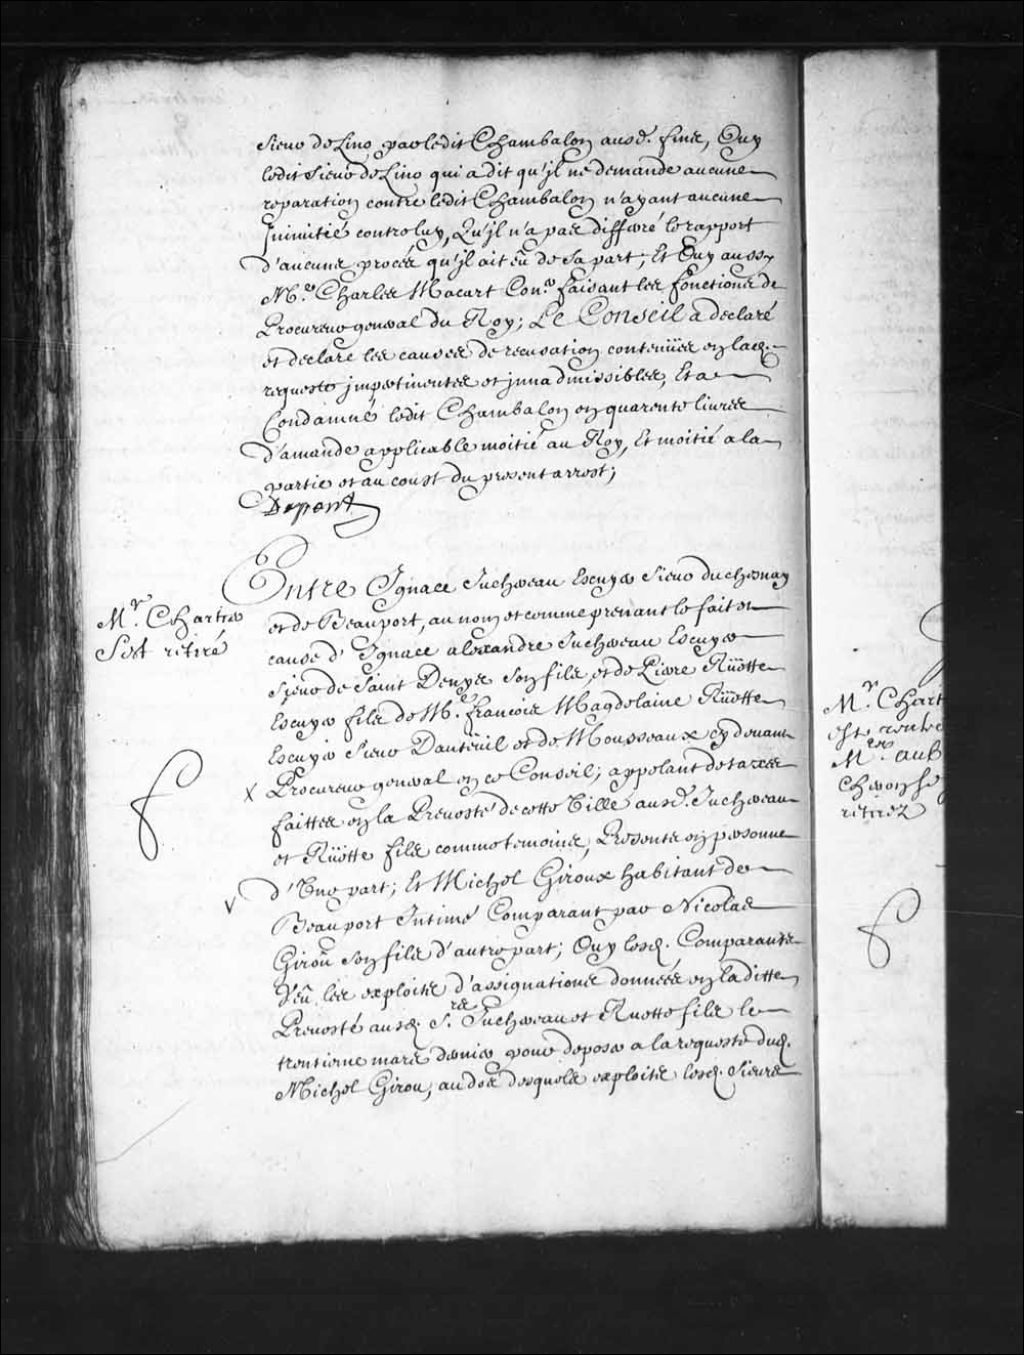 sieur deLino par ledit Chambalon ausd. fins, Ouy
ledit Sieur de Lino qui a dit qu'jl ne demande aucune
reparation contre ledit Chambalon n'ayant aucune
jnimitié contre luy, Qu'jl n'a pas differé le rapport
d'aucuns procés qu'jl ait eû de sa part; Et Ouy aussy
Me. Charles Macart Conr. faisant les fonctions de
Procureur general du Roy; Le Conseil a declaré
et declare les causes de recusation contenües en lad.
requeste jmpertinentes et jnnadmissibles, Et a
Condamné ledit Chambalon en quarente livres
d'amande applicable moitié au Roy, Et moitié a la
partie et au coust du present arrest;
Dupont
Entre Ignace Juchereau Escuyer Sieur duchesnay
et de Beauport, au nom et comme prenant le fait et
cause d'Ignace alexandre Juchereau Escuyer
Sieur de Saint Denys son fils, et de Pierre Rüette
Escuyer fils de Me. françois Magdelaine Rüette
Escuyer Sieur Dauteüil et de Mousseaux cy devant
Procureur general en ce Conseil; appelant de taxes
faittes en la Prevosté de cette Ville ausd. Juchereau
et Rüette fils comme temoins, Presents en personne
d'Une part; Et Michel Giroux habitant de
Beauport Intimé Comparant par Nicolas
Girou son fils d'autre part; Ouy lesd. Comparants
Veû les exploits d'assignations données en laditte
Prevosté ausd. Srs. Juchereau et Ruette fils le
trentieme mars dernier pour deposer a la requeste dud.
Michel Girou, au dos desquels exploits lesd. Sieurs
Mr. Chartier
s'est retiré
Mr. Chart
est rentré
Mrs. aub
retirez